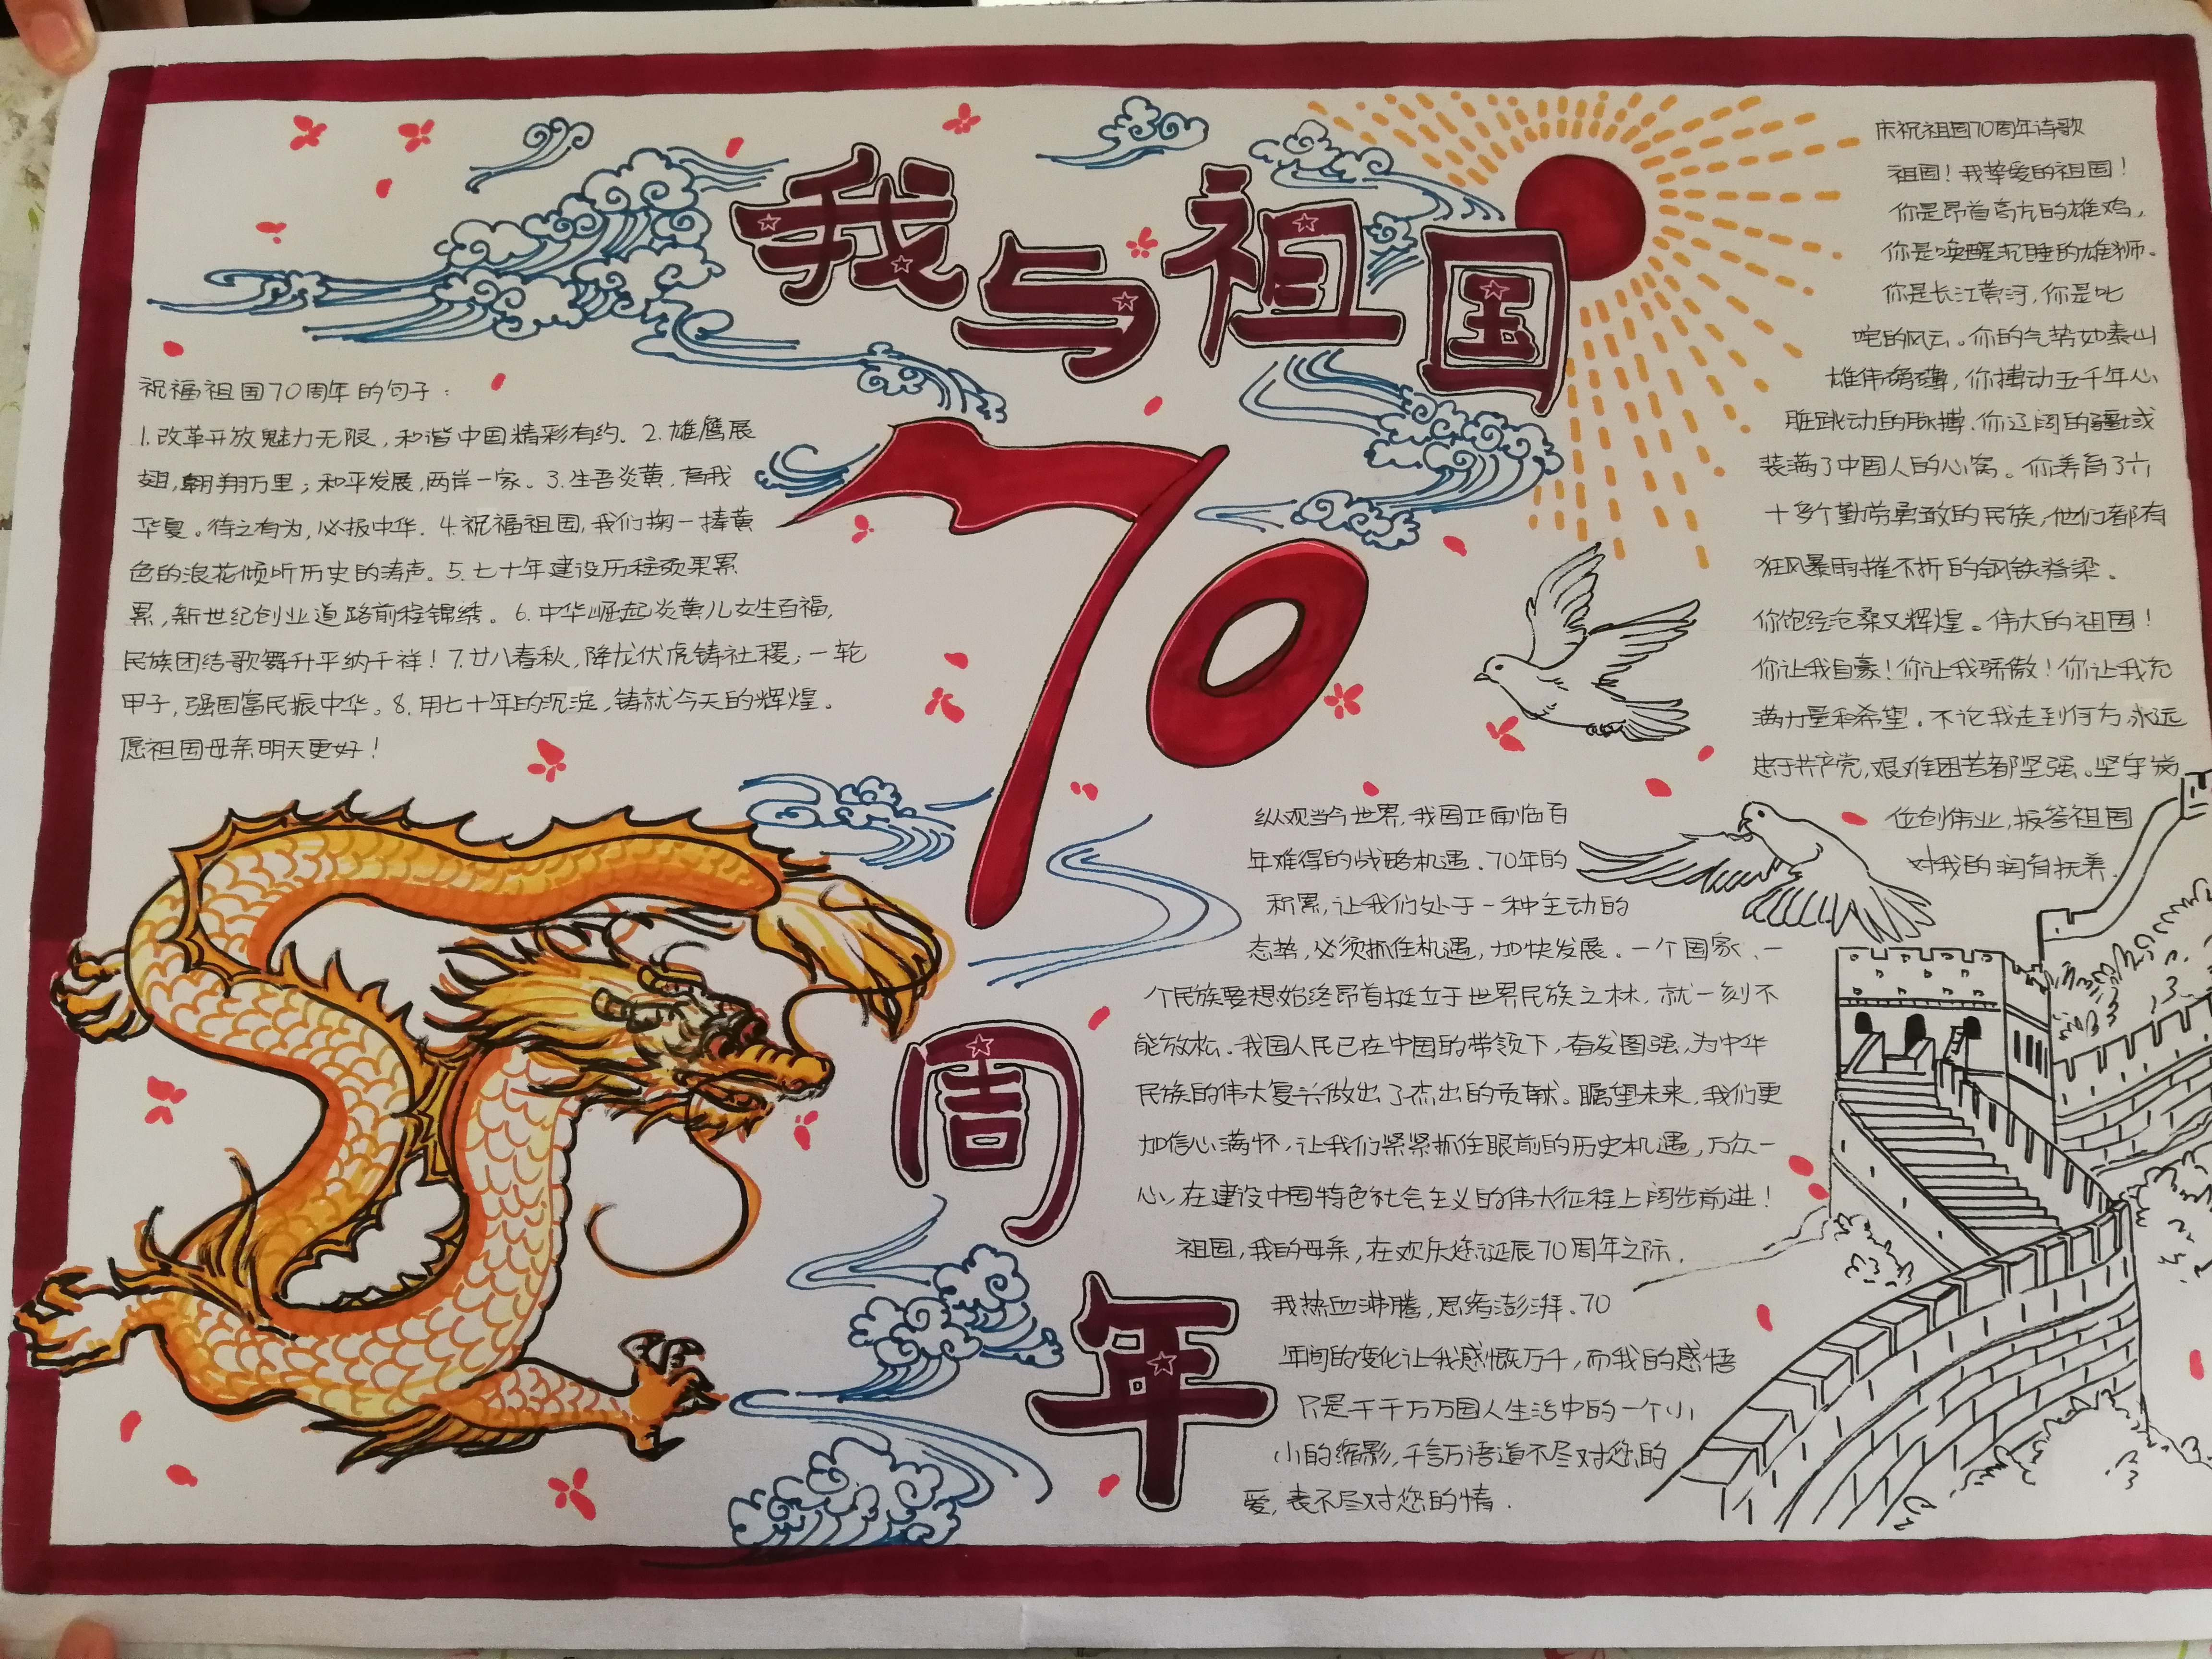 我与祖国
70
周
年
祝福祖国70周年的句子:
1.改革开放魅力无限,和谐中国精彩有约.2.雄鹰展
翅,翱翔万里;和平发展,两岸一家。3.生吾炎黄,育我
华夏。待之有为,必报中华.4.祝福祖国,我们掬一捧黄
色的浪花倾听历史的涛声。5.七十年建设历程硕果累
累,新世纪创业道路前程锦绣。6.中华崛起炎黄儿女生百福,
民族团结歌舞升平纳千祥!7.廿八春秋,降龙伏虎铸社稷;一轮
甲子,强国富民振中华。8.用七十年的沉淀,铸就今天的辉煌。
愿祖国母亲明天更好!
庆祝祖国70周年诗歌
祖国!我挚爱的祖国!
你是昂首高亢的雄鸡,
你是唤醒沉睡的雄狮.
你是长江黄河,你是叱
咤的风云。你的气势如泰山
雄伟磅礴,你搏动五千年心
脏跳动的脉搏.你辽阔的疆域
装满了中国人的心窝。你养育了六
十多个勤劳勇敢的民族,他们都有
狂风暴雨摧不折的钢铁脊梁.
你饱经沧桑又辉煌。伟大的祖国!
你让我自豪!你让我骄傲!你让我充
满力量和希望.不论我走到何方,永远
忠于共产党,艰难困苦都坚强。坚守岗
位创伟业,报答祖国
对我的润育抚养.
纵观当今世界,我国正面临百
年难得的战略机遇.70年的
积累,让我们处于一种主动的
态势,必须抓住机遇,加快发展.一个国家、一
个民族要想始终昂首挺立于世界民族之林,就一刻不
能放松.我国人民已在中国的带领下,奋发图强,为中华
民族的伟大复兴做出了杰出的贡献。瞩望未来,我们更
加信心满怀,让我们紧紧抓住眼前的历史机遇,万众一
心,在建设中国特色社会主义的伟大征程上阔步前进!
祖国,我的母亲,在欢庆您诞辰70周年之际,
我热血沸腾,思绪澎湃.70
年间的变化让我感慨万千,而我的感悟
只是千千万万国人生活中的一个小
小的缩影,千言万语道不尽对您的
爱,表不尽对您的情.